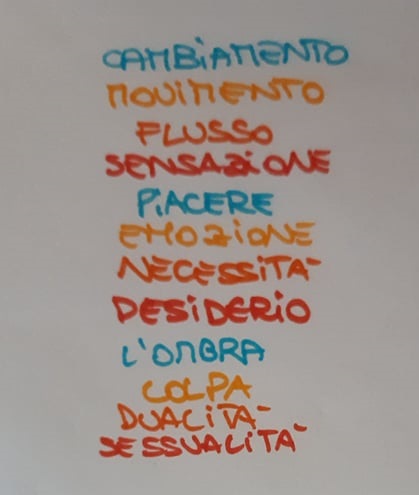 CAMBIAMENTO
MOVIMENTO
FLUSSO
SENSAZIONE
PIACERE
EMOZIONE
NECESSITA'
DESIDERIO
L'OMBRA
COLPA
DUALITA'
SESSUALITA'